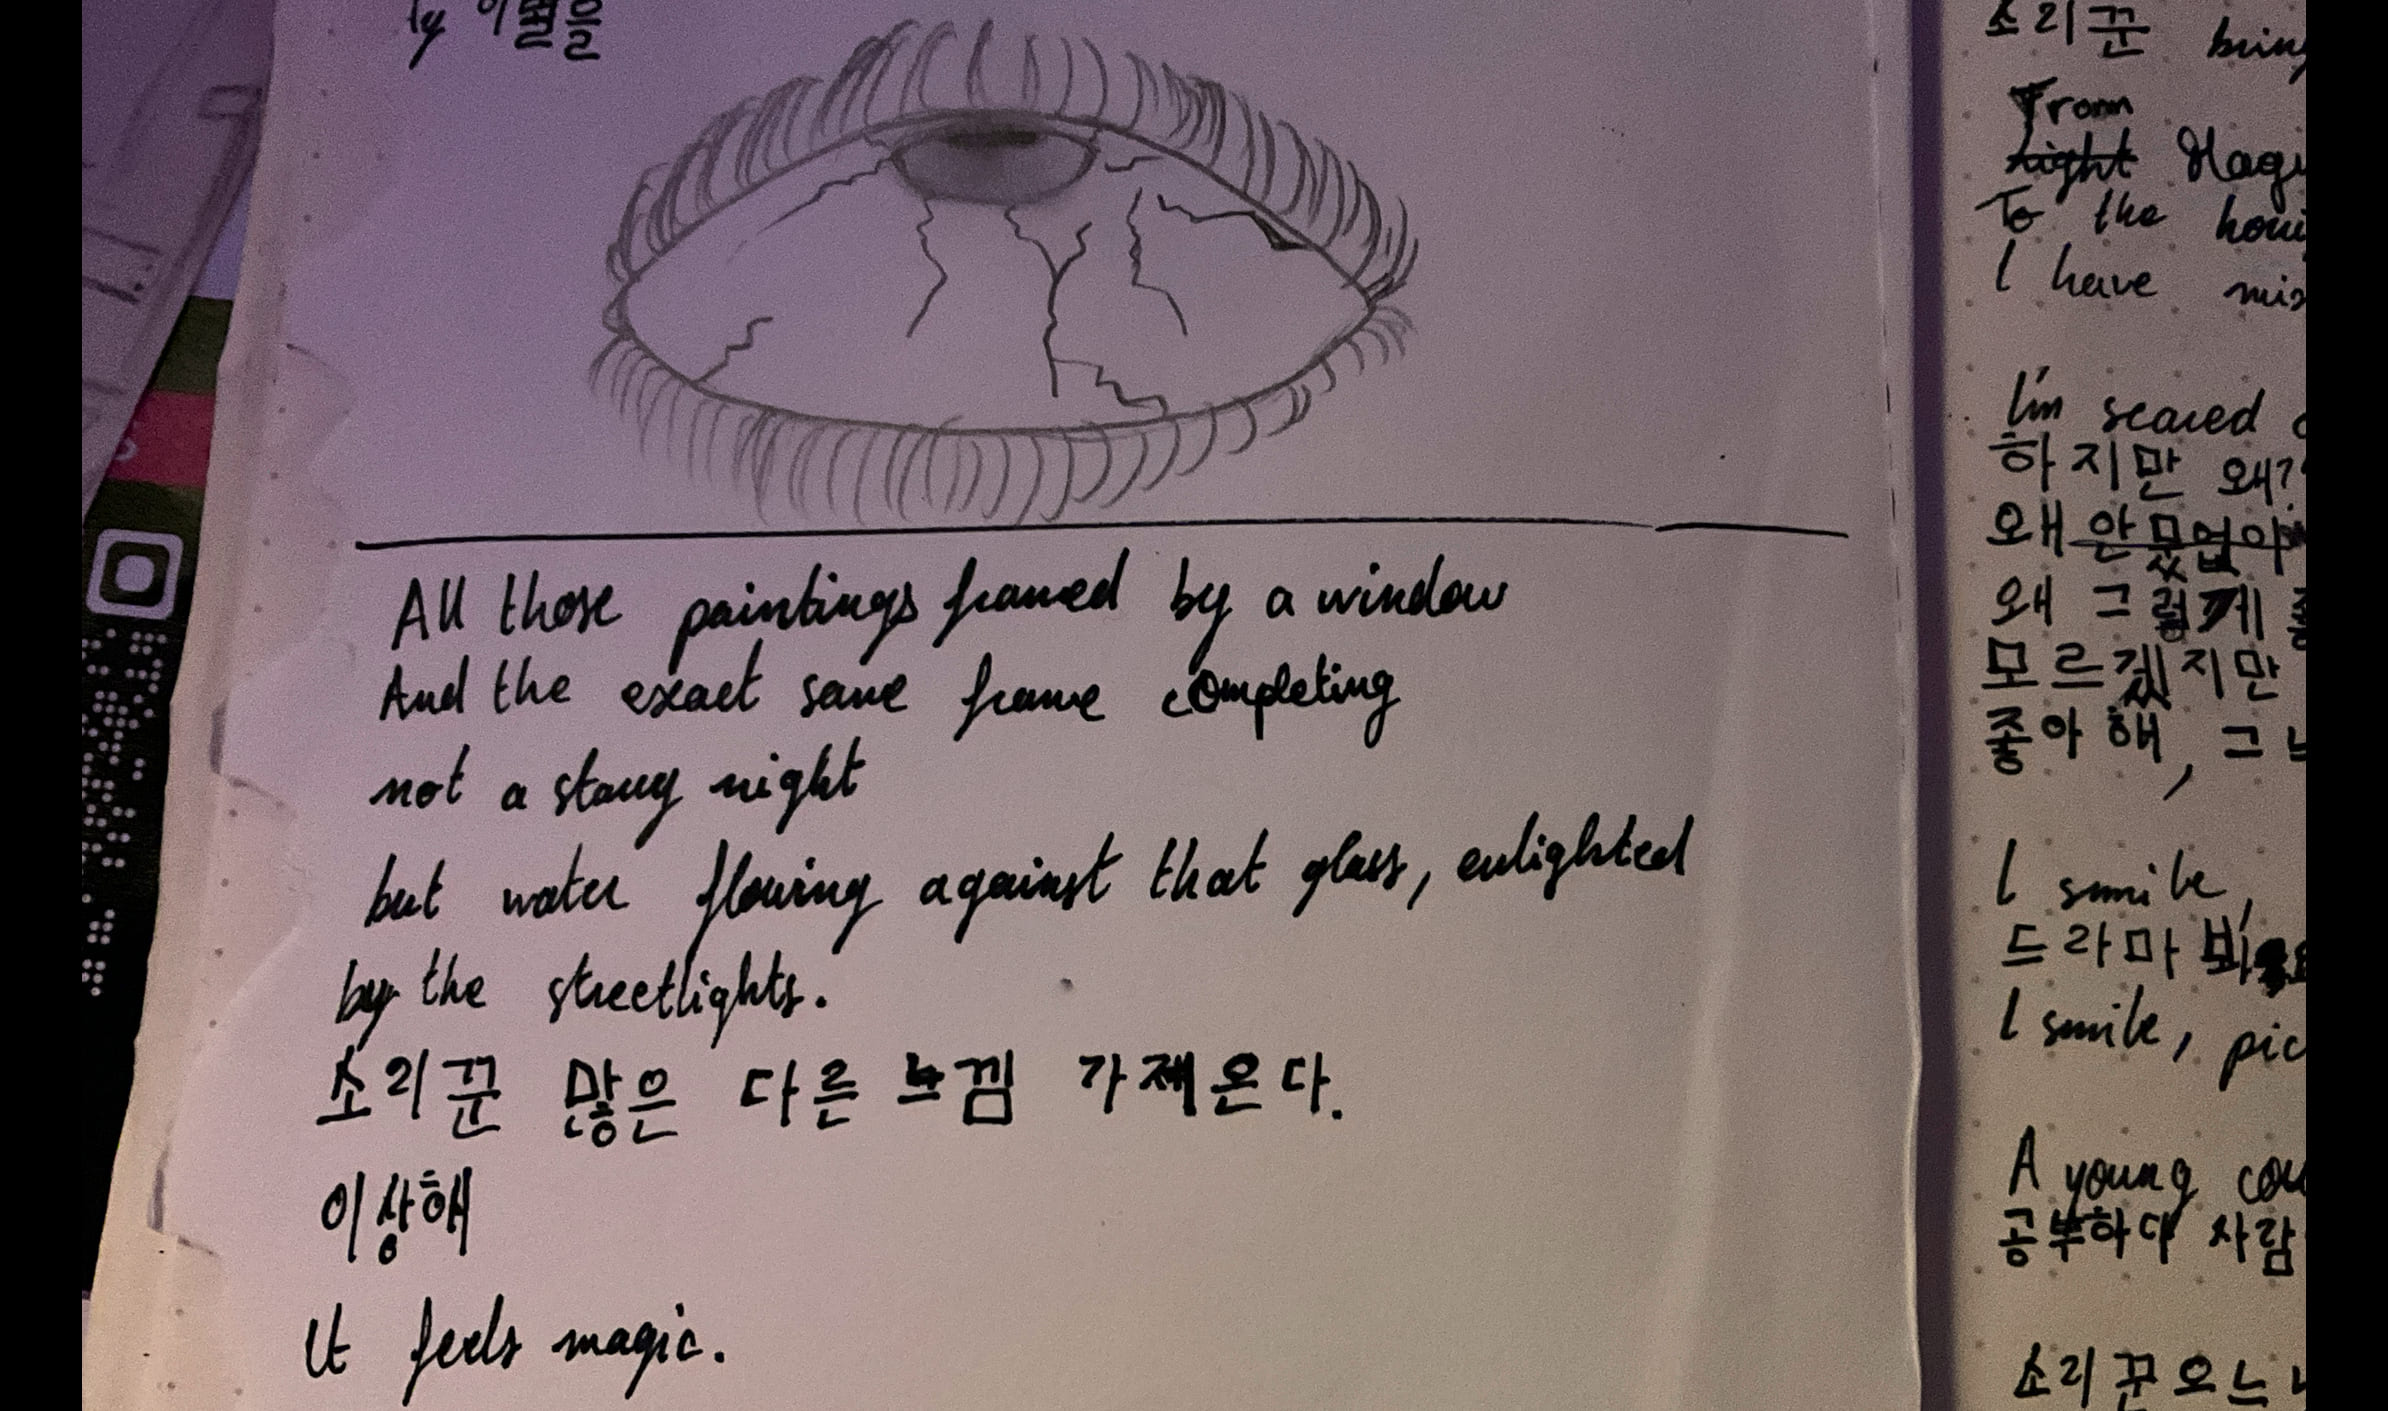 ty 이별을
All those paintings framed by a window
And the exact same frame completing
not a starry night
but water flowing against that glass, enlighted
by the streetlights.
소리꾼 많은 다른 느낌 가제온다.
이상해
It feels magic.
소리꾼 bring
From
night Hagu
To the
I have mis
I'm scared
하지만 왜?
왜 안
왜 그렇게
모르겠지만
좋아해, 그
I smile,
드라마
I smile, pic
A young cou
공부하다 사람
소리꾼 오느